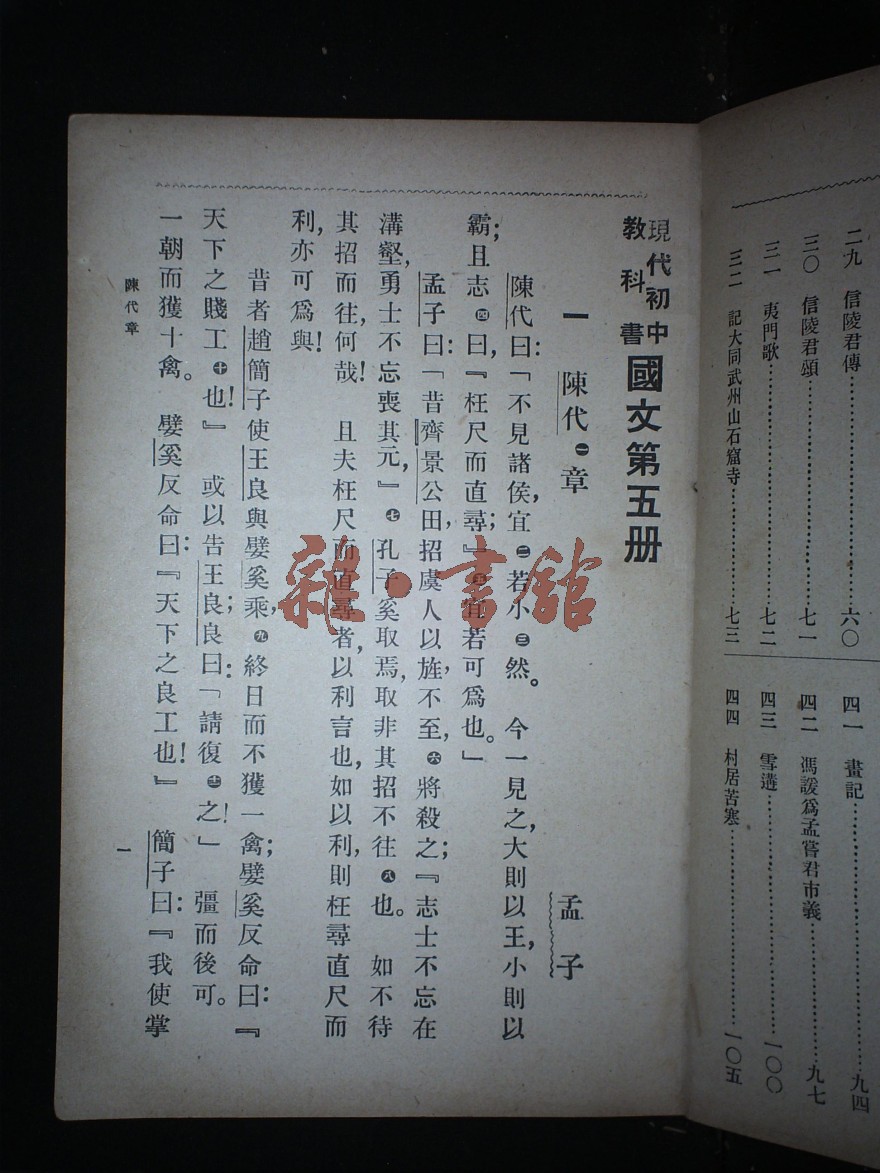 二九 信陵君傳……六〇
三〇 信陵君頌……七一
三一 夷門歌……七二
三二 記大同武州山石窟寺……七三
四一 畫記……九四
四二 馮諼爲孟嘗君市義……九七
四三 雪遘……一〇〇
四四 村居苦寒……一〇五
現代初中教科書 國文第五册
一 陳代㊀章 孟子
陳代曰：「不見諸侯，宜㊁若小㊂然。今一見之，大則以王，小則以
霸；且志㊃曰，『枉尺而直尋；』㊄宜若可爲也。」
孟子曰：「昔齊景公田，招虞人以旌，不至，㊅將殺之；『志士不忘在
溝壑，勇士不忘喪其元，』㊆孔子奚取焉，取非其招不往㊇也。如不待
其招而往，何哉！且夫枉尺而直尋者，以利言也，如以利，則枉尋直尺而
利，亦可爲與！
昔者趙簡子使王良與嬖奚乘，㊈終日而不獲一禽；嬖奚反命曰：『
天下之賤工㊉也！』或以告王良；良曰：「請復㊉㊀之！」彊而後可。
一朝而獲十禽。嬖奚反命曰：『天下之良工也！』簡子曰：『我使掌
陳代章
一
雜·書館